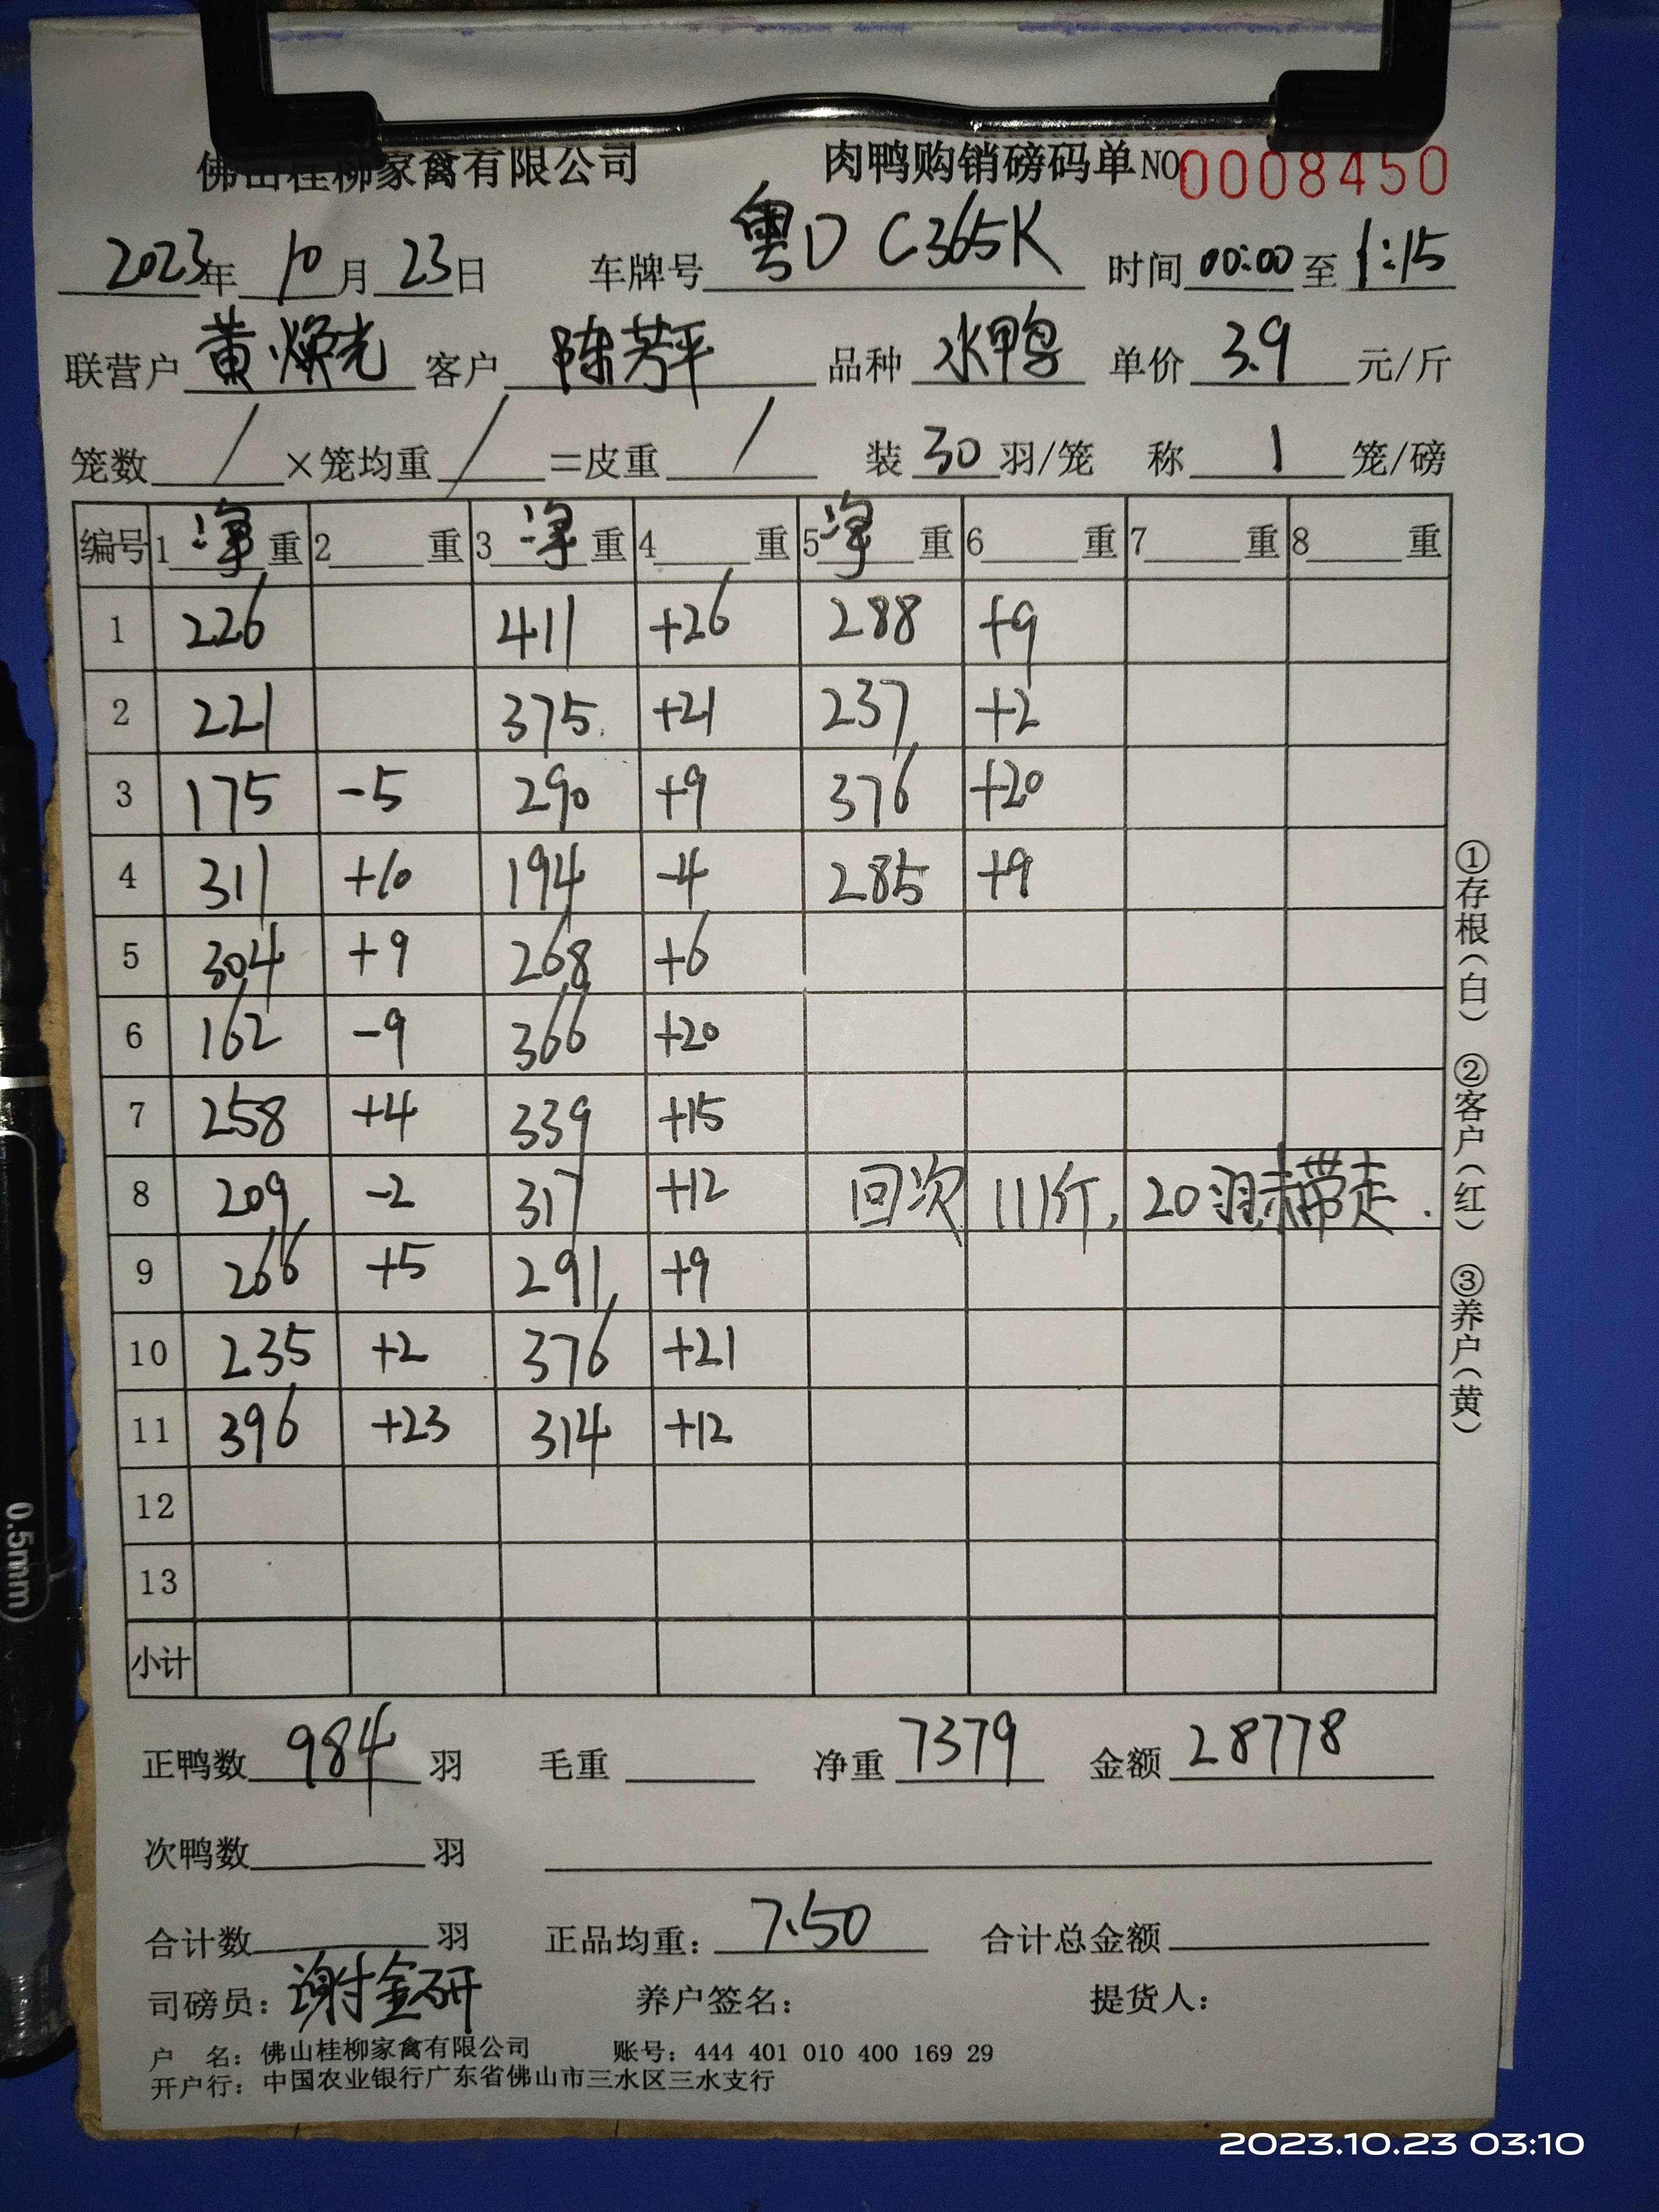 佛山桂柳家禽有限公司 肉鸭购销磅码单 NO 0008450
2023年 10月 23日 车牌号 粤D C365K 时间 00:00 至 1:15
联营户 黄焕光 客户 陈芳平 品种 水鸭 单价 3.9 元/斤
笼数 / ×笼均重 / =皮重 / 装 30 羽/笼 称 1 笼/磅
编号 1 净 重 2 重 3 净 重 4 重 5 净 重 6 重 7 重 8 重
1 226 411 +26 288 +9
2 221 375 +21 237 +2
3 175 -5 290 +9 376 +20
4 311 +10 194 -4 285 +9
5 304 +9 268 +6
6 162 -9 366 +20
7 258 +4 339 +15
8 209 -2 317 +12 回次 111斤, 20羽未带走.
9 266 +5 291 +9
10 235 +2 376 +21
11 396 +23 314 +12
12
13
小计
①存根(白) ②客户(红) ③养户(黄)
正鸭数 984 羽 毛重 净重 7379 金额 28778
次鸭数 羽
合计数 羽 正品均重: 7.50 合计总金额
司磅员: 谢金研 养户签名: 提货人:
户 名: 佛山桂柳家禽有限公司 账号: 444 401 010 400 169 29
开户行: 中国农业银行广东省佛山市三水区三水支行
0.5mm
2023.10.23 03:10